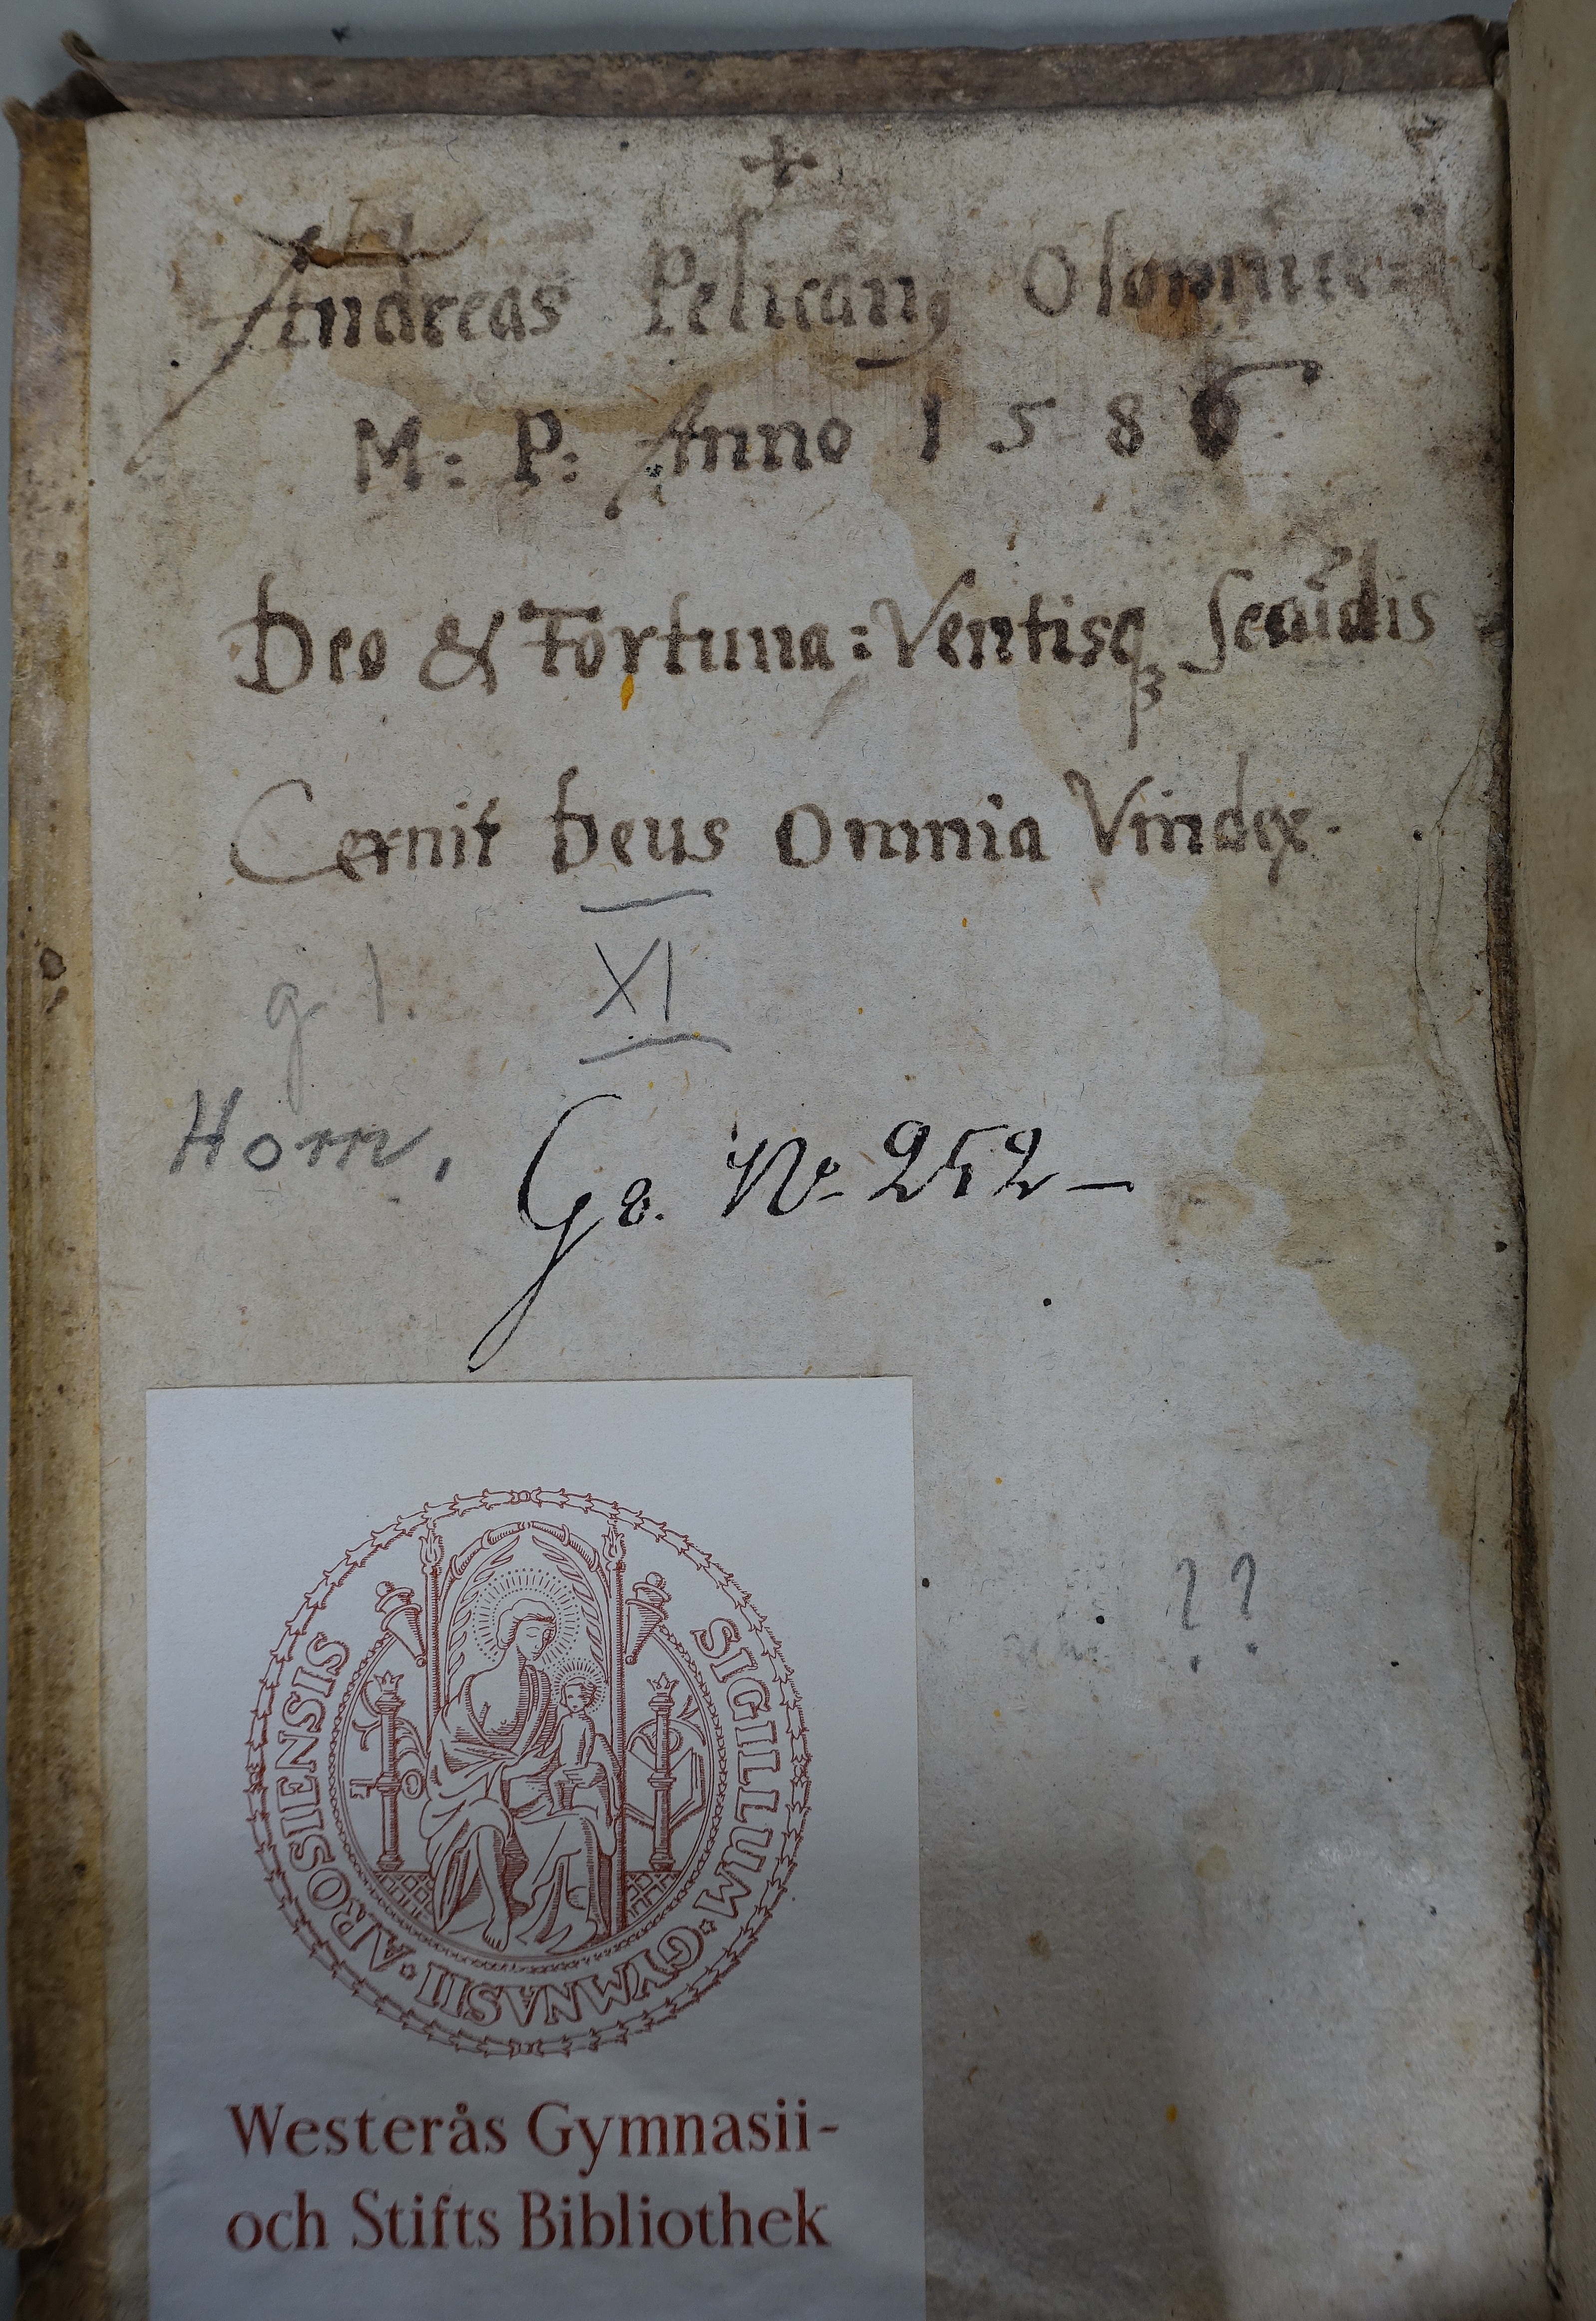 +
Andreas Pelicanꝰ Olomuce=
M: P: Anno 1586
Deo & Fortuna: Ventisqꝫ Secūdis
Cernit Deus Omnia Vindex.
g 1.
XI
Horn,
G 8. No. 252 —
? ?
SIGILLUM ⋆ GYMNASII ⋆ AROSIENSIS
Westerås Gymnasii-
och Stifts Bibliothek